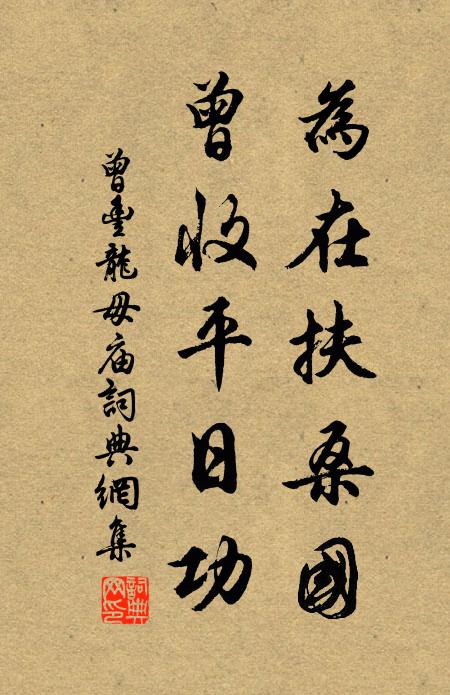 為在扶桑國
曾收平日功
曾豐龍母庙詞典網集
詞典網印